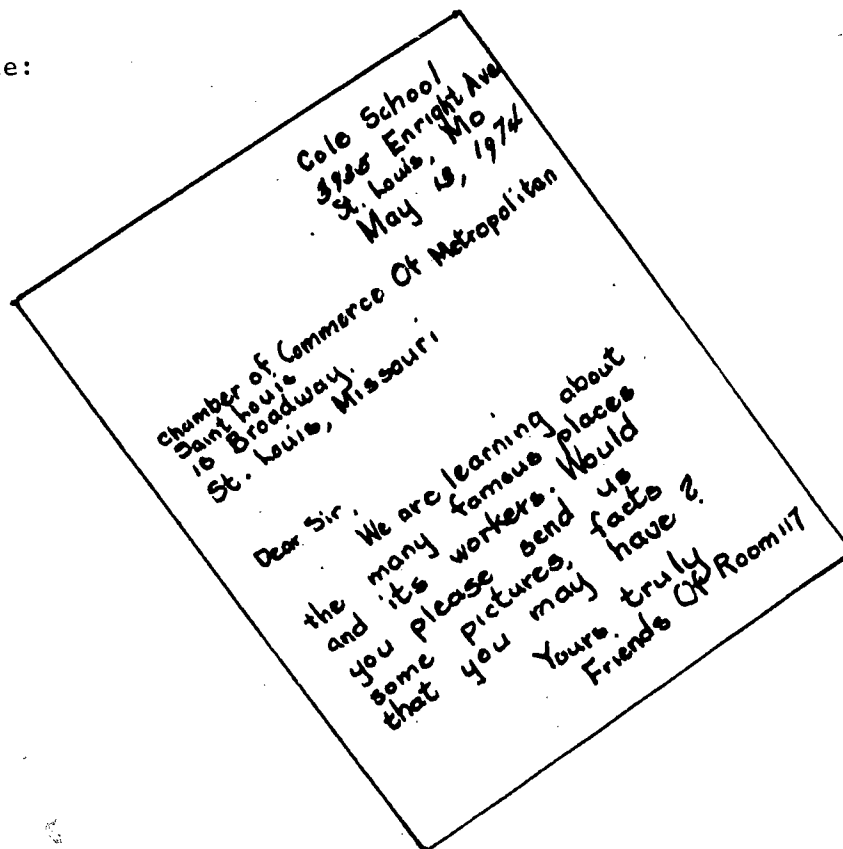 e:
Cole School
3935 Enright Ave
St. Louis, Mo
May 13, 1974
Chamber of Commerce Of Metropolitan
Saint Louis
10 Broadway.
St. Louis, Missouri
Dear Sir,
We are learning about
the many famous places
and its workers. Would
you please send us
some pictures, facts
that you may have?
Yours truly
Friends Of Room 117